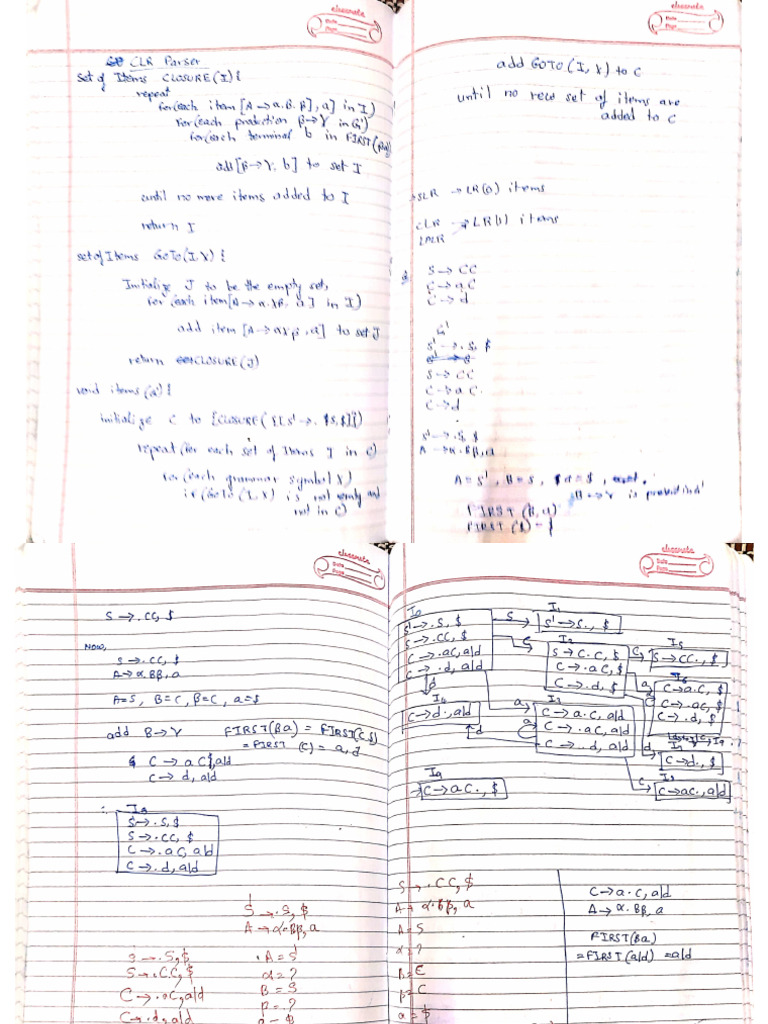 classmate
Date
Page
CLR Parser
Set of Items CLOSURE(I){
repeat
for(each item [A→α.B.β], a] in I)
for(each production B→γ in G')
for(each terminal b in FIRST(βa)
add[B→γ, b] to set I
until no more items added to I
return I
setofItems GOTO(I,X){
Initialize J to be the empty set,
for (each item[A→α.Xβ, a] in I)
add item [A→αXβ, a] to set J
return CLOSURE(J)
void items(G'){
initialize C to {CLOSURE({[S'→. S,$]})
repeat(for each set of Items I in C)
for(each grammar symbol X)
if (GOTO(I,X) is not empty and
not in C)
classmate
Date
Page
add GOTO(I,X) to C
until no new set of items are
added to C
SLR → LR(0) items
CLR → LR(1) items
LALR
S→CC
C→aC
C→d
G'
S'→.S, $
S→CC
C→aC.
C→d
S'→.S,$
A→α.Bβ,a
A=S', B=S, a=$,
B→γ is production
FIRST(B,a)
FIRST($)={
classmate
Date
Page
S→.CC,$
Now,
S→.CC,$
A→α.Bβ,a
A=S, B=C, β=C, a=$
add B→γ FIRST(βa) = FIRST(C,$)
= FIRST (C) = a,d
C→aC,a|d
C→d,a|d
∴ I0
S→.S,$
S→.CC,$
C→.aC,a|d
C→.d,a|d
S→.S,$
A→α.Bβ,a
S→.S,$
S→.CC,$
C→.aC,a|d
C→.d,a|d
A=S'
α=?
B=S
β=?
a=$
classmate
Date
Page
I0
S'→.S,$
S→.CC,$
C→.aC,a|d
C→.d,a|d
S
I1
S'→S.,$
C
I2
S→C.C,$
C→.aC,$
C→.d,$
C
I5
S→CC.,$
a
I6
C→a.C,$
C→.aC,$
C→.d,$
d
I4
C→d.,a|d
a
I3
C→a.C,a|d
C→.aC,a|d
C→.d,a|d
d
I7
C→d.,$
C
I8
C→aC.,a|d
I9
C→aC.,$
S→.CC,$
A→α.Bβ,a
A=S
α=?
B=C
β=C
a=$
C→a.C,a|d
A→α.Bβ,a
FIRST(βa)
=FIRST(a|d) =a|d